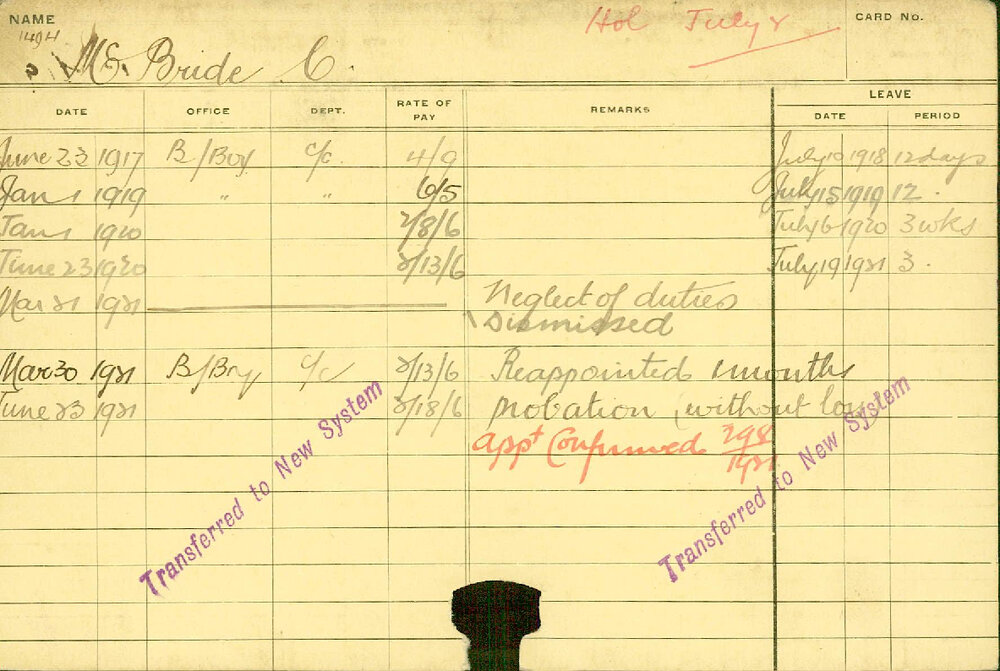 NAME
1494
Hol July 8
CARD No.
McBride C.
DATE OFFICE DEPT. RATE OF PAY REMARKS LEAVE
DATE PERIOD
June 23 1917 B/Boy c/c. 4/9 July 10 1918 12 days
Jan 1 1919 " " 6/5 July 15 1919 12.
Jan 1 1920 2/8/6 July 6 1920 3 wks
June 23 1920 2/13/6 July 19 1921 3.
Mar 21 1921 Neglect of duties
Dismissed
Mar 30 1921 B/Boy c/c 2/13/6 Reappointed months
June 23 1921 2/18/6 probation (without
appt Confirmed 29 8
1921
Transferred to New System
Transferred to New System